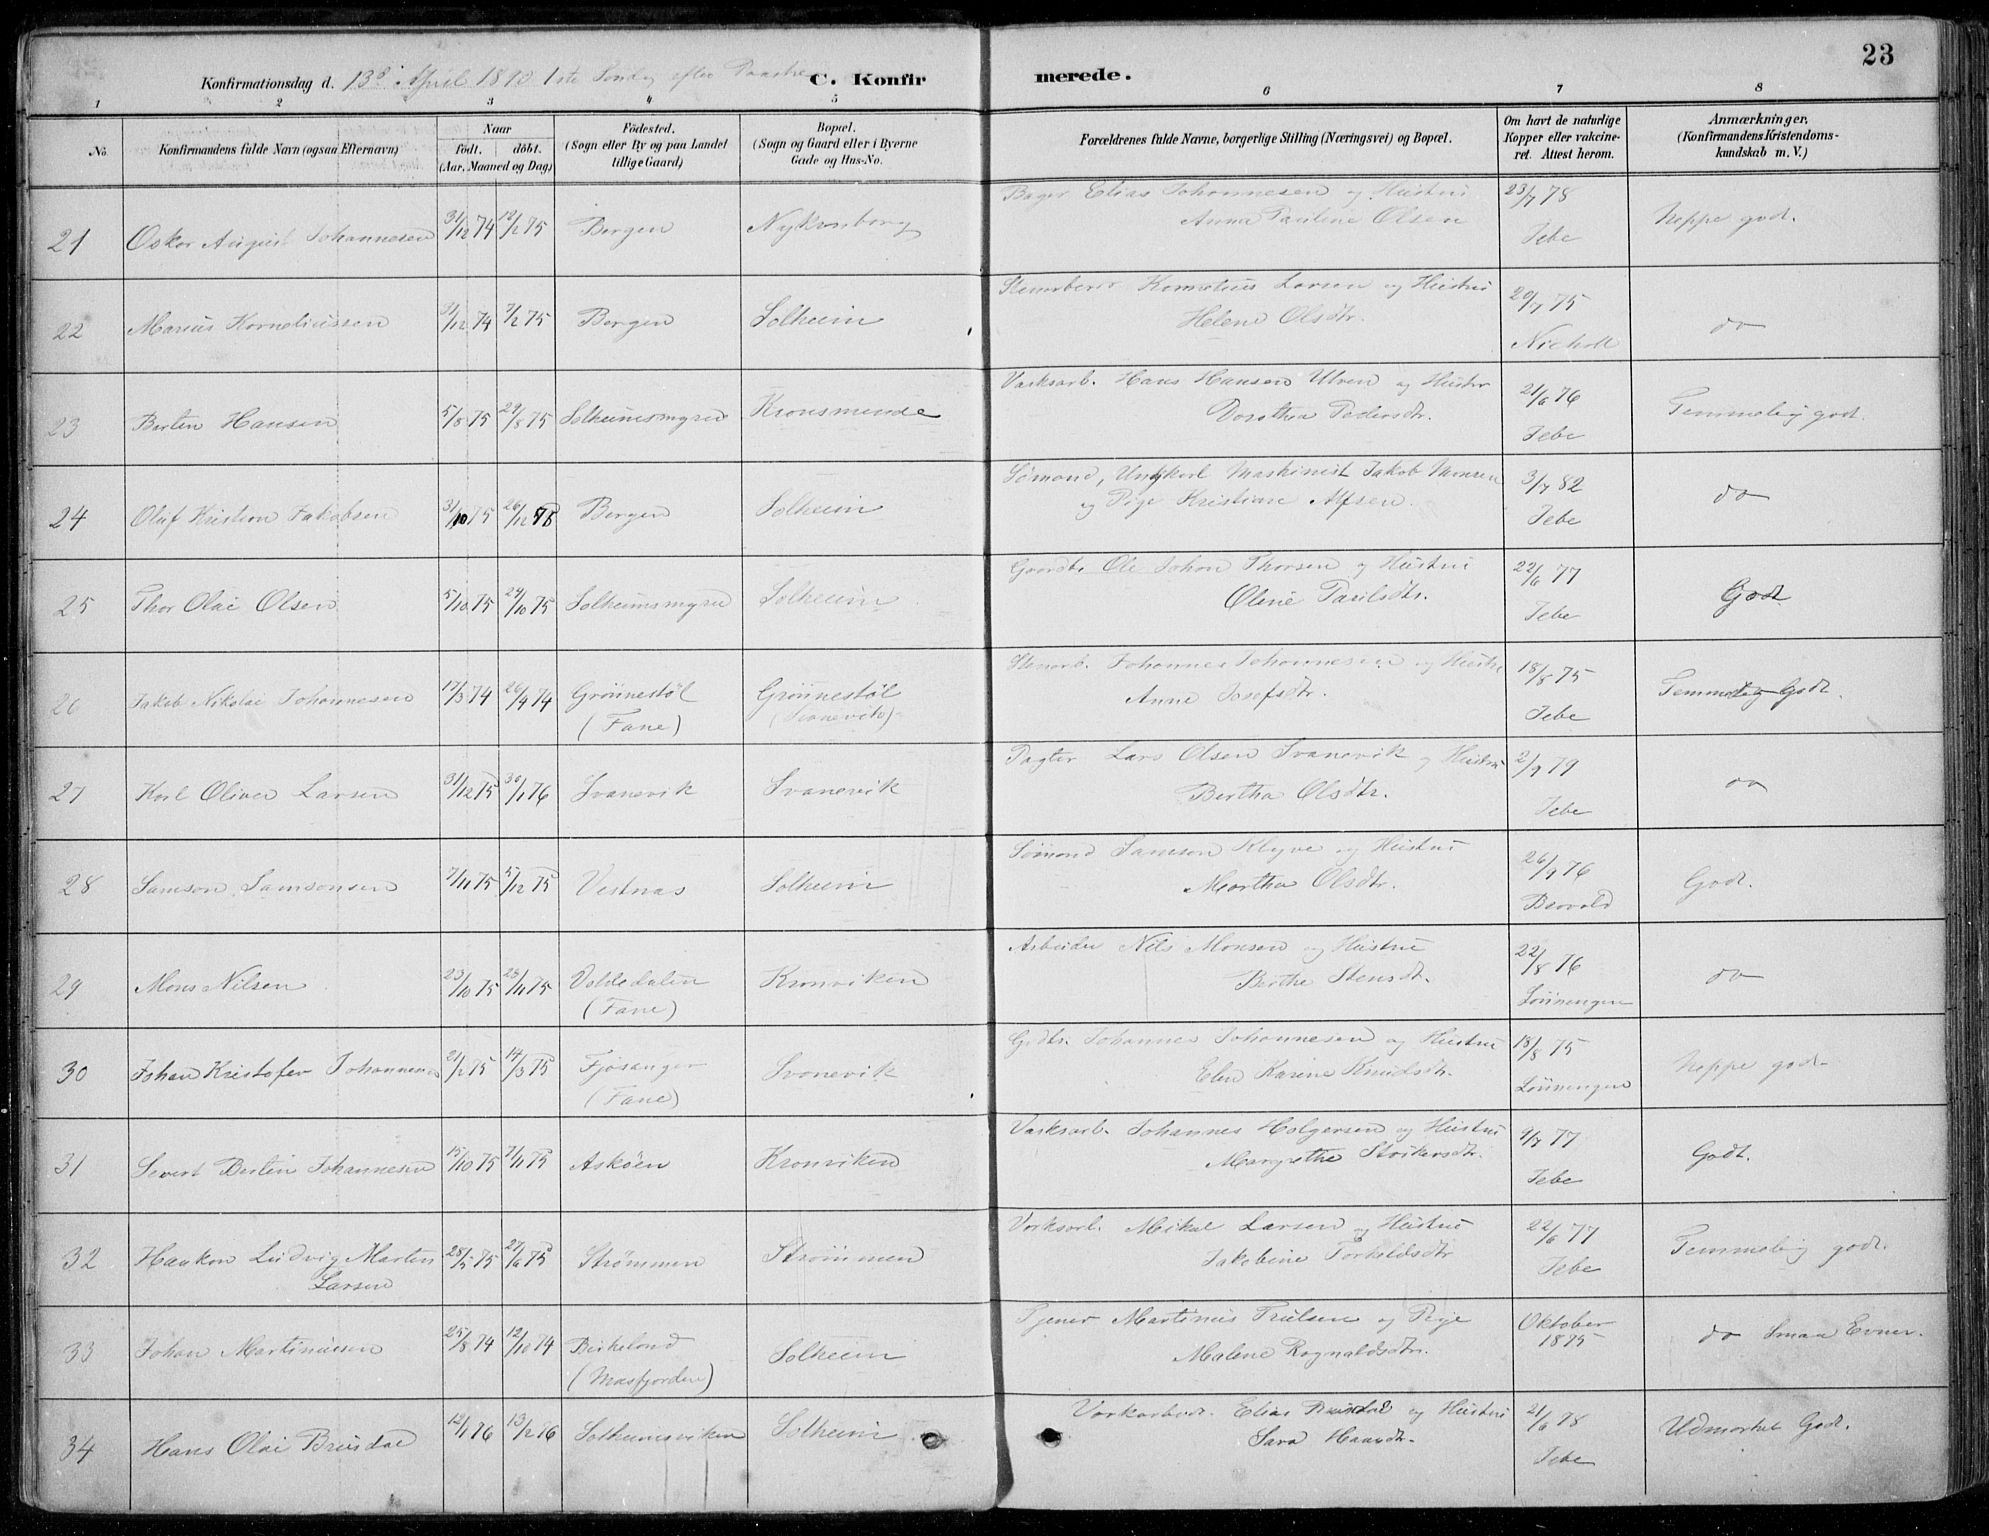 23
Konfirmationsdag d. 13de April 1890 1ste Søndag efter Paaske C. Konfirmerede.
1 2 3 4 5 6 7 8
No. Konfirmandens fulde Navn (ogsaa Efternavn) Naar Födt. döbt. (Aar, Maaned og Dag) Födested. (Sogn eller By og paa Landet tillige Gaard) Bopæl. (Sogn og Gaard eller i Byerne Gade og Hus-No. Forældrenes fulde Navne, borgerlige Stilling (Næringsvei) og Bopæl. Om havt de naturlige Kopper eller vakcineret. Attest herom. Anmærkninger, (Konfirmandens Kristendomskundskab m. V.)
21 Oskar August Johannesen 31/12 74 12/2 75 Bergen Nykronborg Bager Elias Johannesen og Hustru Anna Pauline Olsen 23/7 78 Jebe Neppe god.
22 Marius Korneliussen 31/12 74 7/2 75 Bergen Solheim Kornelius Larsen og Hustru Helene Olsdtr. 20/7 75 Nicholl do
23 Bertin Hansen 5/8 75 29/8 75 Solheimsmyren Kronsminde Værksarb. Hans Hansen Ulven og Hustru Dorothea Pedersdtr. 21/6 76 Jebe Temmelig god.
24 Oluf Kristian Jakobsen 31/10 75 26/12 75 Bergen Solheim Sømand, Ungkarl Maskinist Jakob Monsen og Pige Kristiane Alfsen. 3/7 82 Jebe do
25 Thor Olai Olsen 5/10 75 24/10 75 Solheimsmyren Solheim Gaardbr. Ole Johan Thorsen og Hustru Oline Paulsdtr. 22/6 77 Jebe Godt
26 Jakob Nikolai Johannesen 17/3 74 26/4 74 Grönnestöl (Fane) Grönnestöl (Svanevik) Stenarb. Johannes Johannesen og Hustru Anne Josefsdtr. 18/8 75 Jebe Temmelig Godt.
27 Karl Oliver Larsen 31/12 75 30/1 76 Svanevik Svanevik Pagter Lars Olsen Svanevik og Hustru Bertha Olsdtr. 2/9 79 Jebe do
28 Samson Samsonsen 7/11 75 5/12 75 Vestnas Solheim Sömand Samson Klyve og Hustru Martha Olsdtr. 26/9 76 Bravold Godt.
29 Mons Nilsen 23/10 75 28/11 75 (Fane) Kronviken Arbeider Nils Monsen og Hustru Berthe Stensdtr. 22/8 76 Lönningen do
30 Johan Kristofer Johannesen 21/2 75 14/3 75 Fjösanger (Fane) Svanevik Johannes Johannesen og Hustru Elen Karine Knudsdtr. 18/8 75 Lönningen Neppe god
31 Sivert Bertin Johannesen 15/10 75 7/11 75 Asköen Kronviken Værksarb. Johannes Holgersen og Hustru Margrethe 9/7 77 Jebe Godt.
32 Haakon Ludvig Martin Larsen 28/5 75 27/6 75 Strömmen Strömmen Værksarb. Mikal Larsen og Hustru Jakobine Torkeldsdtr 22/6 77 Jebe Temmelig god.
33 Johan Martinusen 25/8 74 12/10 74 Birkeland (Masfjorden) Solheim Tjener Martinus Trulsen og Pige Malene Ragnaldsdtr. Oktober 1875 do Smaa Evner.
34 Hans Olai Brusdal 12/1 76 13/2 76 Solheimsviken Solheim Værksarbeid. Elias Brusdal og Hustru Sara Haansdtr. 21/6 78 Jebe Udmærket Godt.